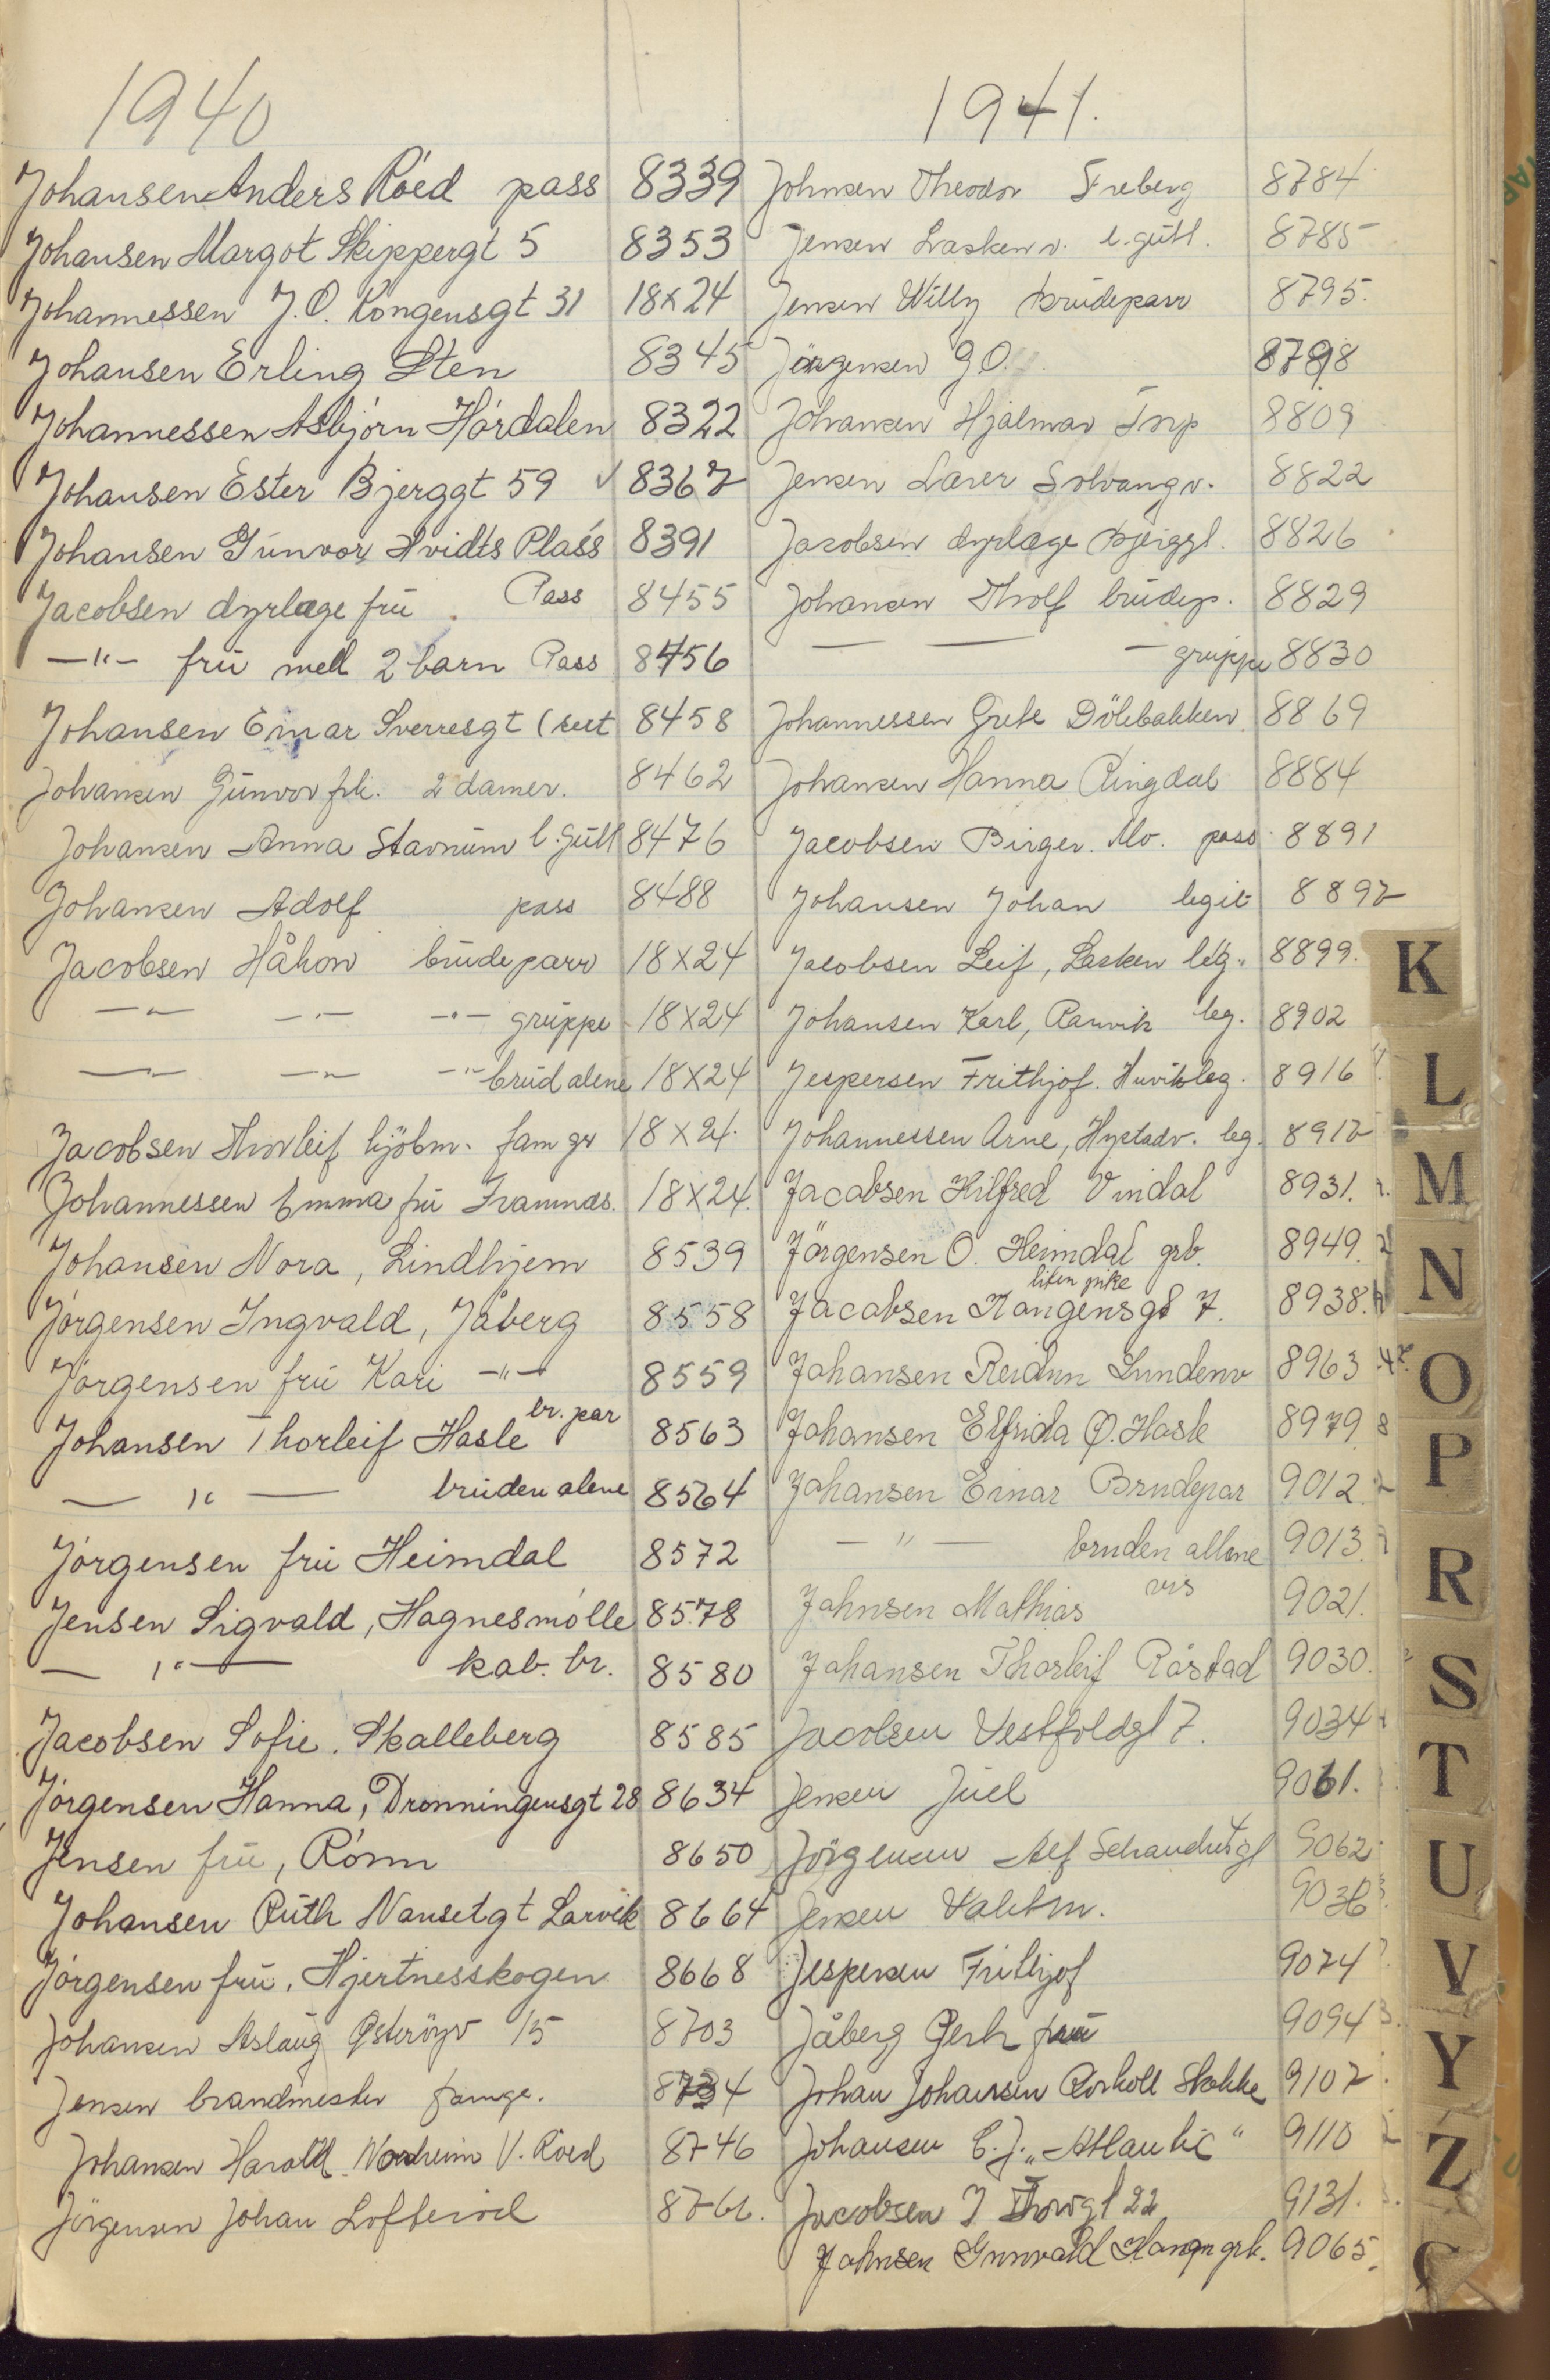 1940
Johansen Anders Röed pass 8339
Johansen Margot Skippergt 5 8353
Johannessen J. O. Kongensgt 31 18x24
Johansen Erling Sten 8345
Johannessen Asbjörn Hórdalen 8322
Johansen Ester Bjerggt 59 8367
Johansen Gunvor Hvidts Plass 8391
Jacobsen dyrlæge frü Pass 8455
—"— frü med 2 barn Pass 8456
Johansen Einar Sverresgt 8458
Johansen Günvor frk. 2 damer. 8462
Johansen Anna Stavnüm l. gütt 8476
Johansen Adolf pass 8488
Jacobsen Håkon brüdeparr 18x24
—"— —"— —"— grüppe 18x24
—"— —"— —"— brüd alene 18x24
Jacobsen Thorleif kjöbm. fam gr 18x24.
Johannessen Emma frü Framnæs. 18x24.
Johansen Nora, Lindhjem 8539
Jörgensen Ingvald, Jåberg 8558
Jörgensen frü Kari —"— 8559
Johansen Thorleif Hasle br. par 8563
— " — brüden alene 8564
Jörgensen frü Heimdal 8572
Jensen Sigvald, Hagnesmölle 8578
— " — kab. br. 8580
Jacobsen Sofie. Skalleberg 8585
Jörgensen Hanna, Dronningensgt 28 8634
Jensen frü, Rönn 8650
Johansen Rüth Nansetgt Larvik 8664
Jörgensen frü, Hjertnesskogen 8668
Johansen Aslaüg Österöyv 15 8703
Jensen brandmester 8734
Johansen Harald Nordheim V. Röed 8746
Jörgensen Johan 876
1941.
Johnsen Theodor Freberg 8784
Jensen Lasken v. l. gütt. 8785
Jensen Willy brüdeparr 8795.
Jörgensen G O. 8798
Johansen Hjalmar Torp 8809
Jensen Lærer Solvang v. 8822
Jacobsen dyrlæge Bjerggt. 8826
Johansen Tholf brüdep. 8829
— — — grüppe 8830
Johannessen Grete Dölebakken 8869
Johansen Hanna Ringdal 8884
Jacobsen Birger. Mo. pass 8891
Johansen Johan legit 8892
Jacobsen Leif, Lasken leg. 8899.
Johansen Karl, Ranvik leg. 8902
Jespersen Frithjof. Huvik leg. 8916
Johannessen Arne, leg. 8912
Jacobsen Hilfred Vindal 8931.
Jörgensen O. Heimdal grb. 8949.
liten pike
Jacobsen Kongensgt 7. 8938.
Johansen Reidun Lundenv 8963
Johansen Elfrida Ø. Hasle 8979
Johansen Einar Brudepar 9012.
— " — bruden allene 9013.
Johnsen Mathias vis 9021.
Johansen Thorleif Råstad 9030.
Jacobsen Vestfoldgt 7. 9034
Jensen Jüel 9061.
Jörgensen Alf 9062
Jensen Vaktm. 9036
Jespersen Frithjof 9074
Jåberg Gerh frü 9094
Johan Johansen Stokke 9107
Johansen C. J. „Atlantic" 9110
Jacobsen J Thorsgt 22 9131.
Johnsen Gunvald 9065.
K
L
M
N
O
P
R
S
T
U
V
Y
Z